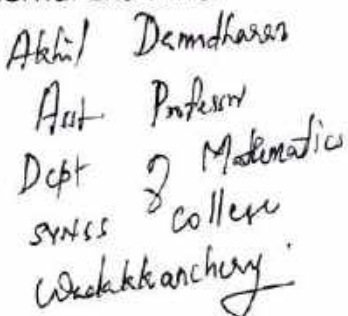 Akhil Damodharan
Asst Professor
Dept of Mathematics
SVNSS College
Wadakkanchery.